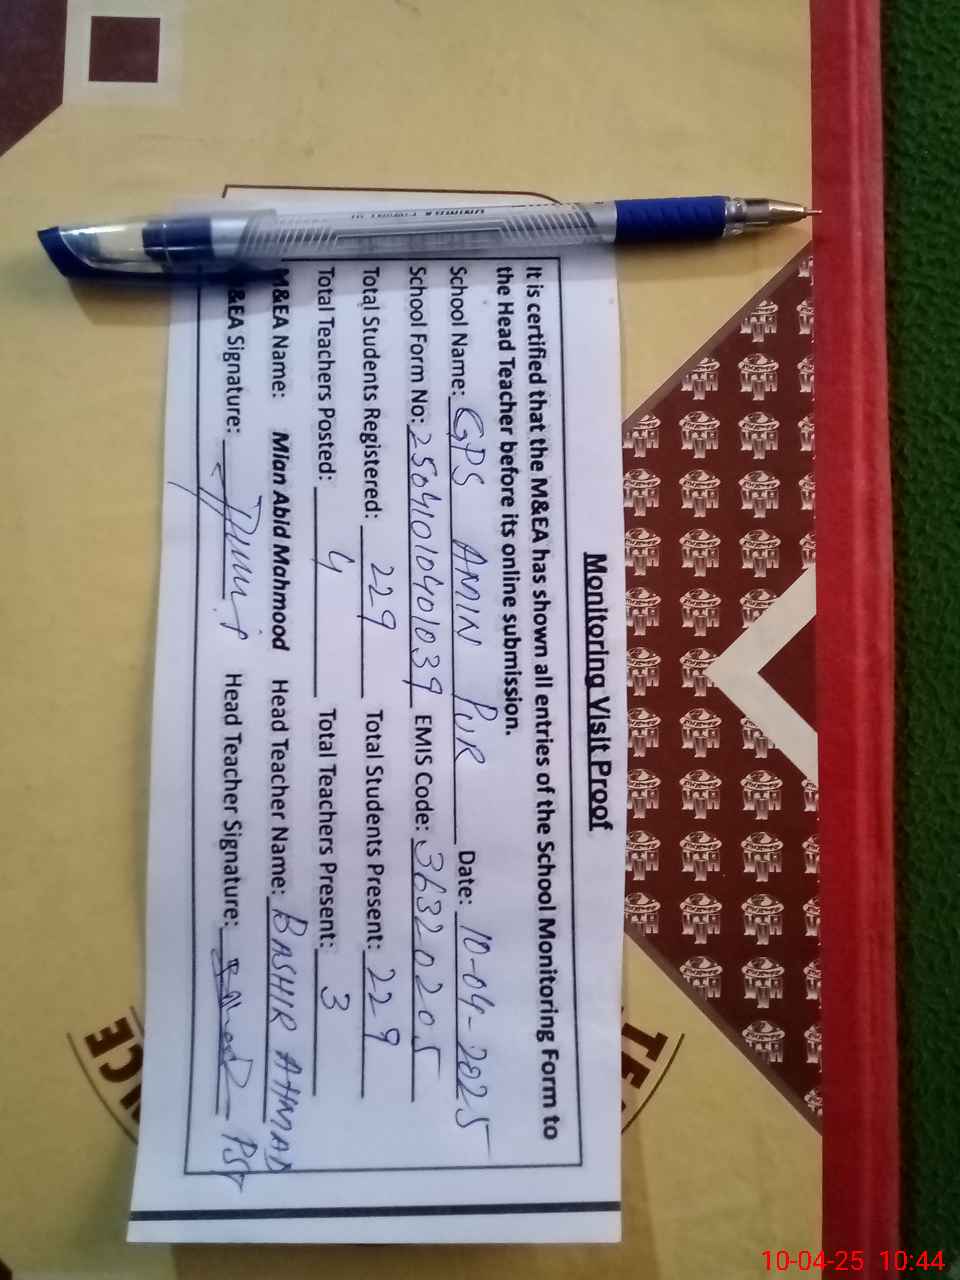 Monitoring Visit Proof
It is certified that the M&EA has shown all entries of the School Monitoring Form to
the Head Teacher before its online submission.
School Name: GPS AMIN PUR Date: 10-04-2025
School Form No: 25041010401039 EMIS Code: 36320205
Total Students Registered: 229 Total Students Present: 229
Total Teachers Posted: 4 Total Teachers Present: 3
M&EA Name: Mian Abid Mahmood Head Teacher Name: BASHIR AHMAD
&EA Signature: Head Teacher Signature: PST
10-04-25 10:44